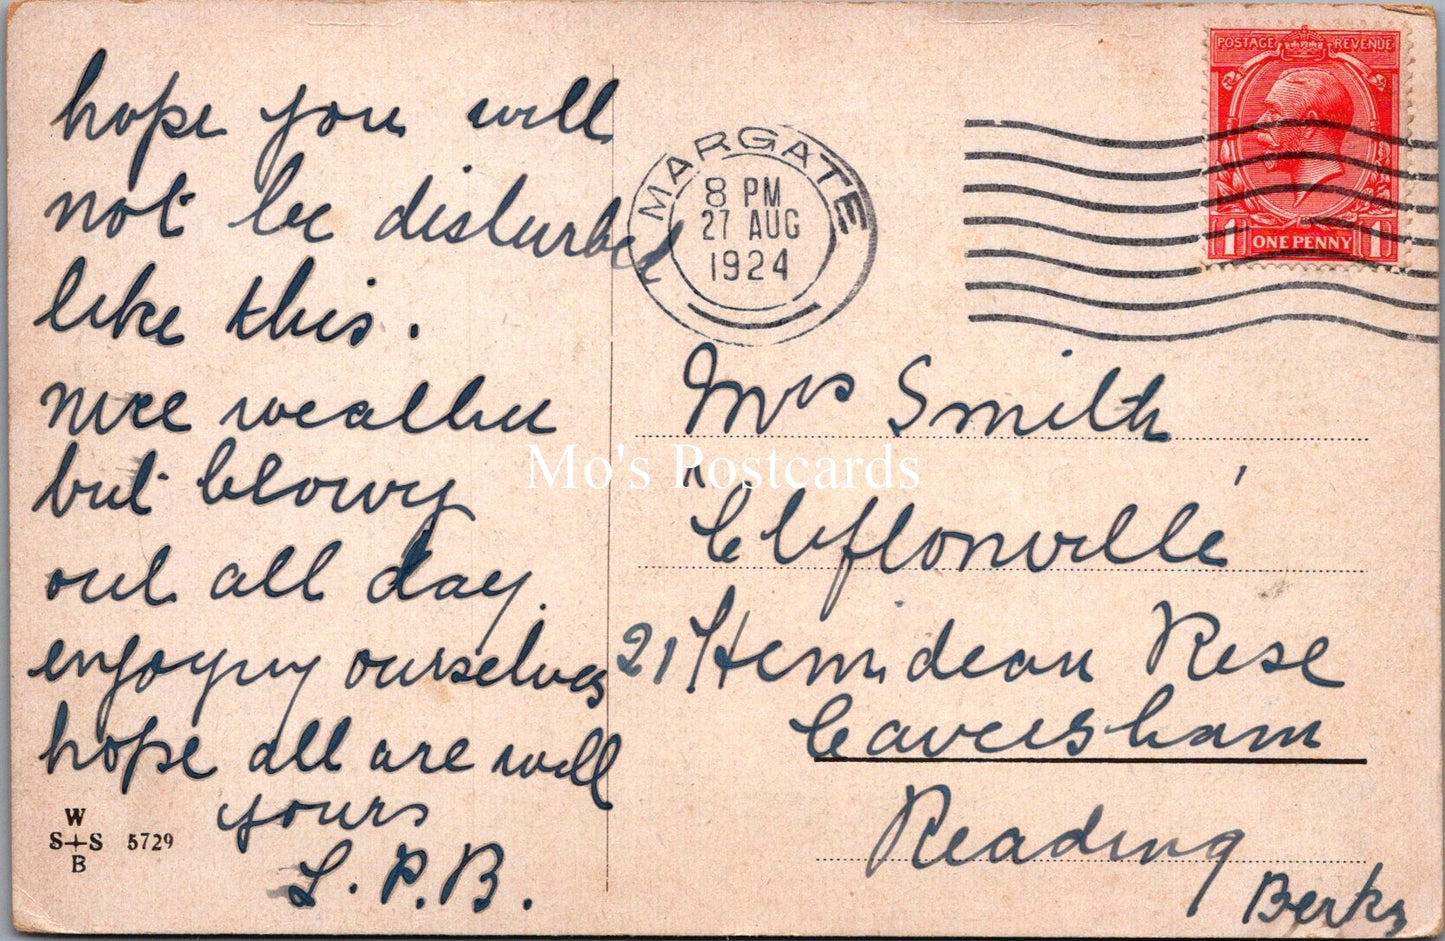 hope you will
not be disturbed
like this.
nice weather
but blowy
out all day.
enjoying ourselves
hope all are well
yours
L.P.B.
W
S+S 5729
B
MARGATE
8 PM
27 AUG
1924
POSTAGE REVENUE
1 ONE PENNY 1
Mrs Smith
"Cliftonville"
21 Hemdean Rise
Caversham
Reading
Berks
Mo's Postcards